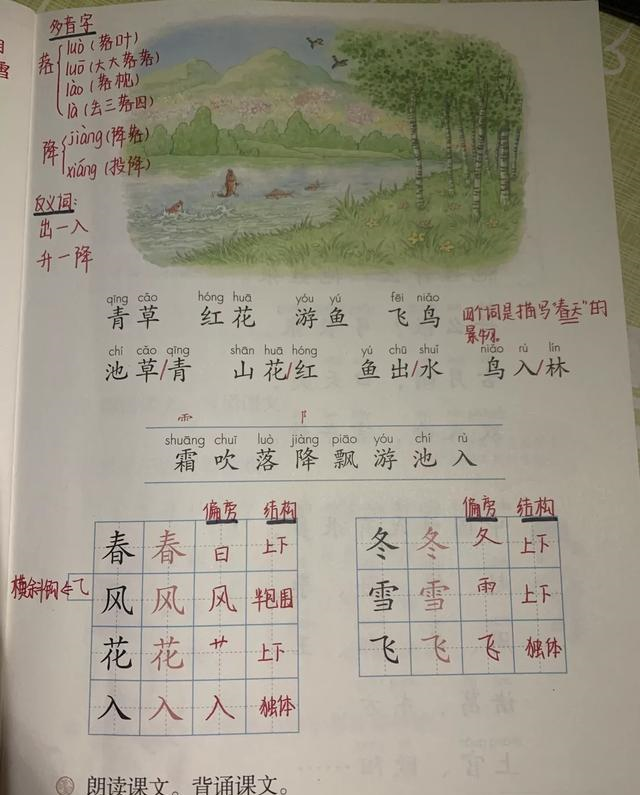 多音字
落
luò（落叶）
luō（大大落落）
lào（落枕）
là（丢三落四）
降
jiàng（降落）
xiáng（投降）
反义词：
出—入
升—降
qīng cǎo hóng huā yóu yú fēi niǎo
青草 红花 游鱼 飞鸟
四个词是描写“春天”的
景物。
chí cǎo qīng shān huā hóng yú chū shuǐ niǎo rù lín
池草/青 山花/红 鱼出/水 鸟入/林
⻗ 阝
shuāng chuī luò jiàng piāo yóu chí rù
霜 吹 落 降 飘 游 池 入
偏旁 结构
春 春 日 上下
横斜钩⇐乁 风 风 风 半包围
花 花 艹 上下
入 入 入 独体
偏旁 结构
冬 冬 夂 上下
雪 雪 ⻗ 上下
飞 飞 飞 独体
朗读课文。背诵课文。